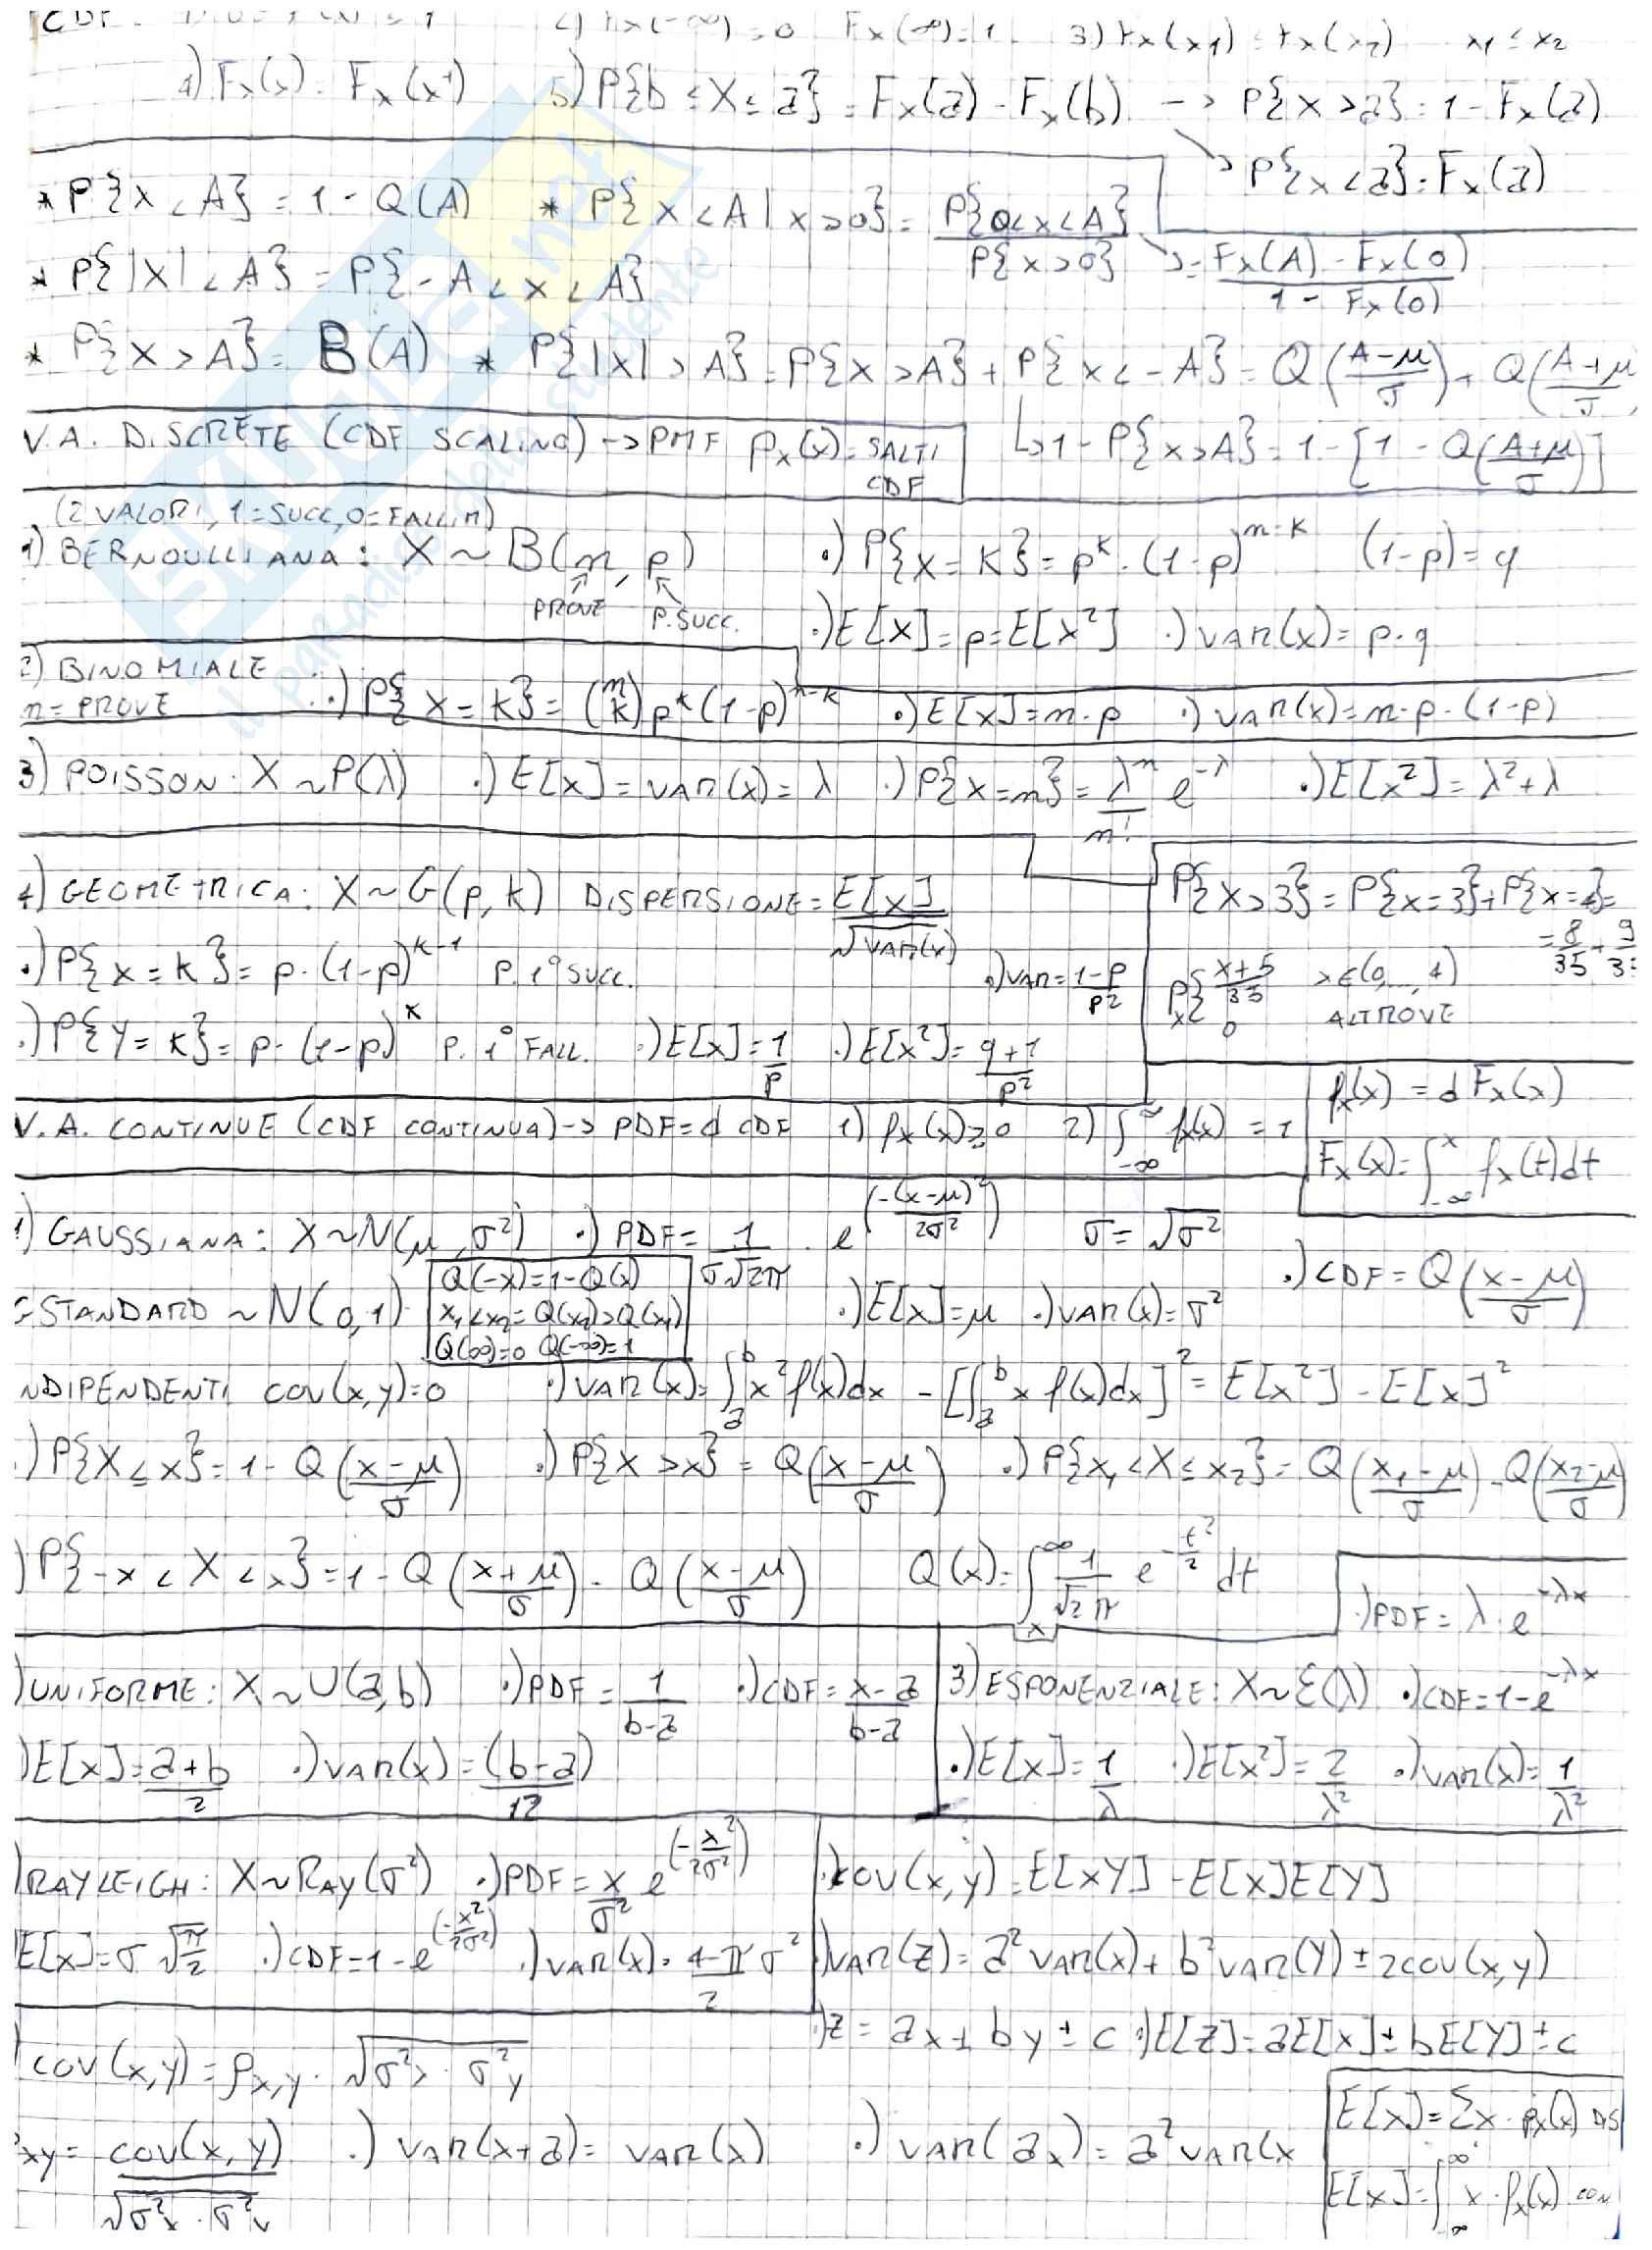 CDF
2) Fx(-∞)=0 Fx(∞)=1 3) Fx(x1) ≤ Fx(x2) x1 ≤ x2
4) Fx(x) = Fx(x⁺) 5) P{b ≤ X ≤ a} = Fx(a) - Fx(b) -> P{x > a} = 1 - Fx(a)
-> P{x < a} = Fx(a)
* P{X < A} = 1 - Q(A) * P{X < A | x > 0} = P{0 < x < A} / P{x > 0} -> = Fx(A) - Fx(0) / 1 - Fx(0)
* P{|X| < A} = P{-A < X < A}
* P{X > A} = B(A) * P{|X| > A} = P{X > A} + P{x < -A} = Q((A-μ)/σ) + Q((A+μ)/σ
V.A. DISCRETE (CDF SCALINO) -> PMF px(x) = SALTI CDF
↳ 1 - P{x > A} = 1 - [1 - Q((A+μ)/σ)]
(2 VALORI, 1=SUCC, 0=FALLIM)
1) BERNOULLIANA: X ~ B(n, p) •) P{X = K} = p^k · (1-p)^(n-k) (1-p) = q
PROVE P. SUCC. •) E[X] = p = E[X²] •) VAR(x) = p·q
2) BINOMIALE
n = PROVE •) P{X = K} = (n k) p^k (1-p)^(n-k) •) E[X] = n·p •) VAR(x) = n·p·(1-p)
3) POISSON: X ~ P(λ) •) E[X] = VAR(x) = λ •) P{X = n} = λ^n/n! e^-λ •) E[X²] = λ² + λ
4) GEOMETRICA: X ~ G(p, k) DISPERSIONE = E[X]/√VAR(x)
P{X > 3} = P{x = 3} + P{x = 4} =
= 8/35 +
•) P{X = K} = p·(1-p)^(k-1) P. 1° SUCC. •) VAR = (1-p)/p²
Px{ (x+5)/35 x ∈ (0, ..., 4)
0 ALTROVE
•) P{Y = K} = p·(1-p)^k P. 1° FALL. •) E[X] = 1/p •) E[X²] = (q+1)/p²
V.A. CONTINUE (CDF CONTINUA) -> PDF = d CDF 1) fx(x) ≥ 0 2) ∫_-∞^∞ fx(x) = 1
fx(x) = d Fx(x)
Fx(x) = ∫_-∞^x fx(t)dt
1) GAUSSIANA: X ~ N(μ, σ²) •) PDF = 1/(σ√2π) · e^(-(x-μ)²/2σ²) σ = √σ²
STANDARD ~ N(0,1) •) E[X] = μ •) VAR(x) = σ² •) CDF = Q((x-μ)/σ)
Q(-x) = 1 - Q(x)
x1 < x2 = Q(x2) > Q(x1)
Q(∞)=0 Q(-∞)=1
NDIPENDENTI COV(x,y) = 0 •) VAR(x) = ∫_a^b x² f(x)dx - [∫_a^b x f(x)dx]² = E[X²] - E[X]²
•) P{X ≤ x} = 1 - Q((x-μ)/σ) •) P{X > x} = Q((x-μ)/σ) •) P{x1 < X ≤ x2} = Q((x1-μ)/σ) - Q((x2-μ)/σ)
) P{-x < X < x} = 1 - Q((x+μ)/σ) - Q((x-μ)/σ) Q(x) = ∫_x^∞ 1/√2π e^(-t²/2) dt
) UNIFORME: X ~ U(a, b) •) PDF = 1/(b-a) •) CDF = (x-a)/(b-a)
) E[X] = (a+b)/2 •) VAR(x) = (b-a)/12
•) PDF = λ·e^(-λx)
3) ESPONENZIALE: X ~ Ɛ(λ) •) CDF = 1 - e^(-λx)
•) E[X] = 1/λ •) E[X²] = 2/λ² •) VAR(x) = 1/λ²
) RAYLEIGH: X ~ RAY(σ²) •) PDF = x/σ² e^(-x²/2σ²)
E[X] = σ√(π/2) •) CDF = 1 - e^(-x²/2σ²) •) VAR(x) = (4-π)/2 σ²
•) COV(x,y) = E[XY] - E[X]E[Y]
•) VAR(Z) = a² VAR(x) + b² VAR(Y) ± 2COV(x,y)
•) Z = ax ± by ± c •) E[Z] = aE[X] ± bE[Y] ± c
COV(x,y) = ρx,y · √σ²x · σ²y
xy = COV(x,y)/√σ²x · σ²y •) VAR(x+a) = VAR(x) •) VAR(ax) = a² VAR(x
E[X] = Σx · px(x) DIS
E[X] = ∫_-∞^∞ x · fx(x) CON
SKUOLA.net
il paradiso dello studente